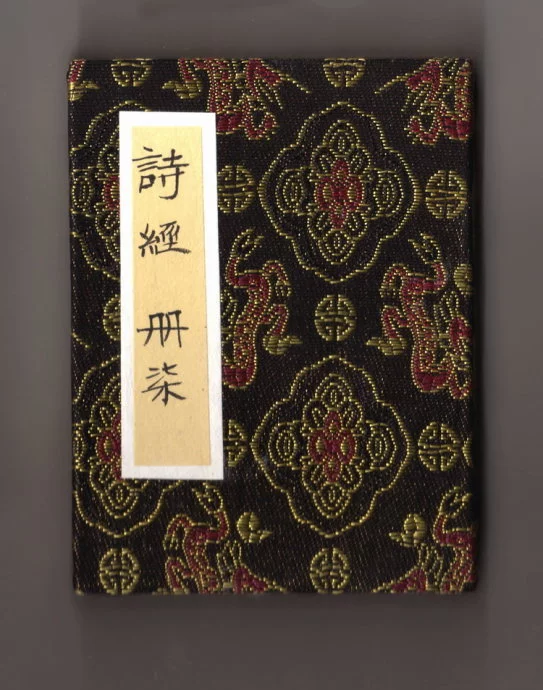 詩經 册柒